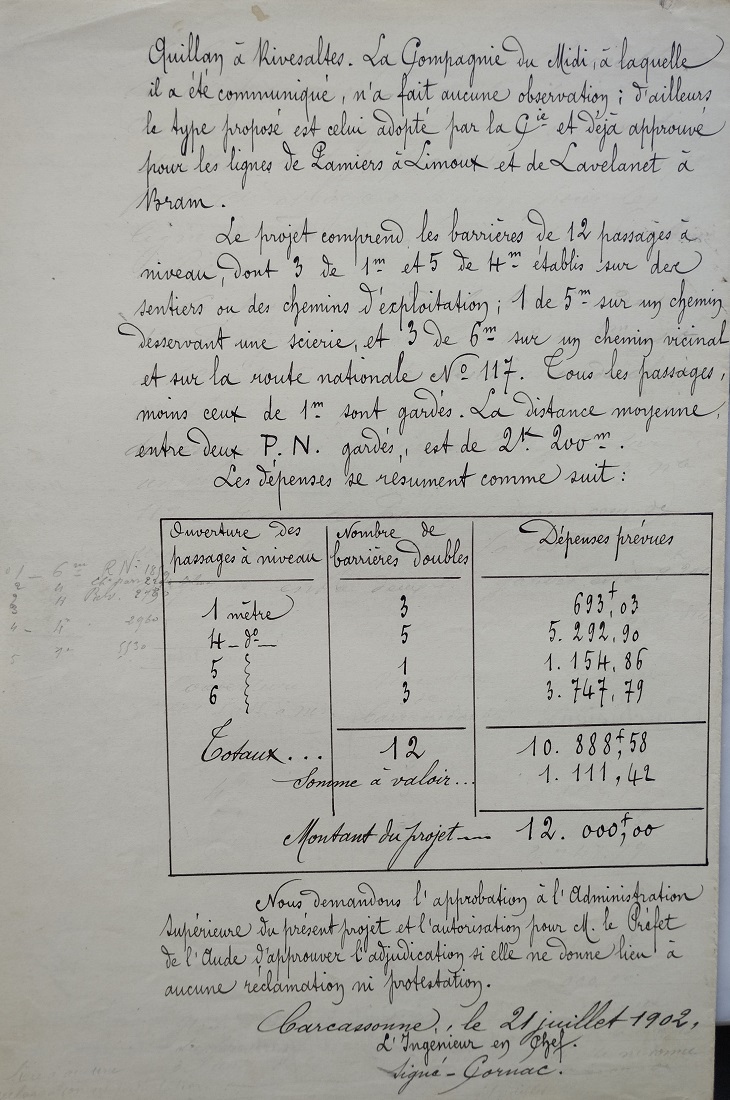 Quillan à Rivesaltes. La Compagnie du Midi, à laquelle
il a été communiqué, n'a fait aucune observation ; d'ailleurs
le type proposé est celui adopté par la Cie et déjà approuvé
pour les lignes de Pamiers à Limoux et de Lavelanet à
Bram.
Le projet comprend les barrières de 12 passages à
niveau, dont 3 de 1m et 5 de 4m établis sur des
sentiers ou des chemins d'exploitation ; 1 de 5m sur un chemin
desservant une scierie, et 3 de 6m sur un chemin vicinal
et sur la route nationale No 117. Tous les passages,
moins ceux de 1m sont gardés. La distance moyenne,
entre deux P.N. gardés, est de 2K. 200m.
Les dépenses se résument comme suit :
Ouverture des passages à niveau | Nombre de barrières doubles | Dépenses prévues
1 mètre 3 693f,03
4 - do - 5 5. 292,90
5 1 1. 154,86
6 3 3. 747,79
Totaux... 12 10. 888f,58
Somme à valoir... 1. 111,42
Montant du projet 12. 000f,00
Nous demandons l'approbation à l'Administration
Supérieure du présent projet et l'autorisation pour M. le Préfet
de l'Aude d'approuver l'adjudication si elle ne donne lieu à
aucune réclamation ni protestation.
Carcassonne, le 21 juillet 1902,
L'Ingénieur en Chef.
Signé - Cornac.